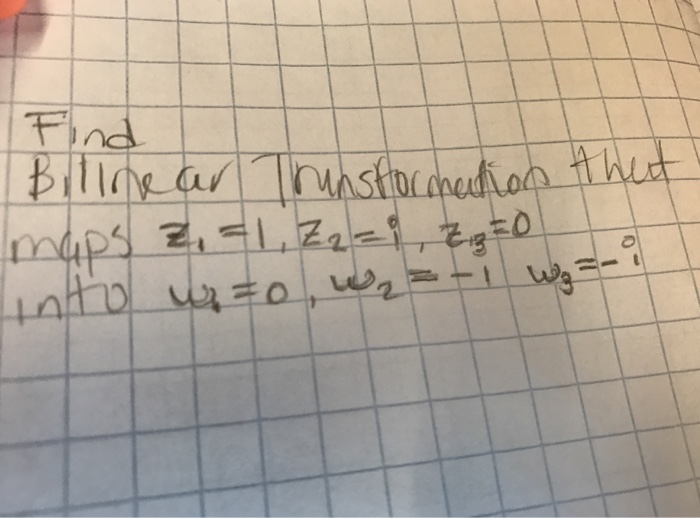 Find
Bilinear Transformation that
maps z₁ = 1, z₂ = i, z₃ = 0
into w₁ = 0, w₂ = -1 w₃ = -i